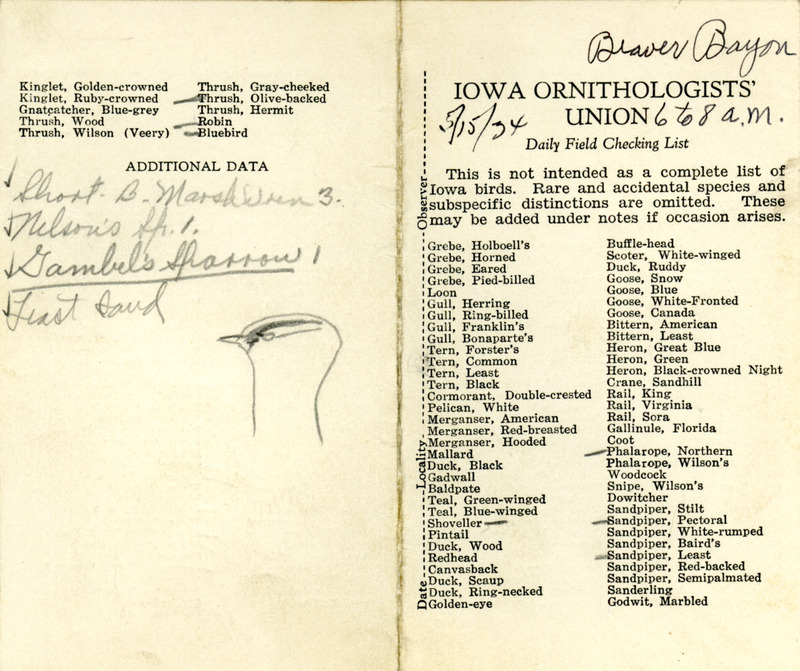 Kinglet, Golden-crowned
Kinglet, Ruby-crowned
Gnatcatcher, Blue-grey
Thrush, Wood
Thrush, Wilson (Veery)
Thrush, Gray-cheeked
Thrush, Olive-backed
Thrush, Hermit
Robin
Bluebird
ADDITIONAL DATA
Short-B. Marsh Wren 3.
Nelson's Sp. 1.
Gambel's Sparrow 1
Least Sand
Beaver Bayou
IOWA ORNITHOLOGISTS'
UNION 6 to 8 a.m.
5/15/34
Daily Field Checking List
This is not intended as a complete list of
Iowa birds. Rare and accidental species and
subspecific distinctions are omitted. These
may be added under notes if occasion arises.
Date Locality Observer
Grebe, Holboell's
Grebe, Horned
Grebe, Eared
Grebe, Pied-billed
Loon
Gull, Herring
Gull, Ring-billed
Gull, Franklin's
Gull, Bonaparte's
Tern, Forster's
Tern, Common
Tern, Least
Tern, Black
Cormorant, Double-crested
Pelican, White
Merganser, American
Merganser, Red-breasted
Merganser, Hooded
Mallard
Duck, Black
Gadwall
Baldpate
Teal, Green-winged
Teal, Blue-winged
Shoveller
Pintail
Duck, Wood
Redhead
Canvasback
Duck, Scaup
Duck, Ring-necked
Golden-eye
Buffle-head
Scoter, White-winged
Duck, Ruddy
Goose, Snow
Goose, Blue
Goose, White-Fronted
Goose, Canada
Bittern, American
Bittern, Least
Heron, Great Blue
Heron, Green
Heron, Black-crowned Night
Crane, Sandhill
Rail, King
Rail, Virginia
Rail, Sora
Gallinule, Florida
Coot
Phalarope, Northern
Phalarope, Wilson's
Woodcock
Snipe, Wilson's
Dowitcher
Sandpiper, Stilt
Sandpiper, Pectoral
Sandpiper, White-rumped
Sandpiper, Baird's
Sandpiper, Least
Sandpiper, Red-backed
Sandpiper, Semipalmated
Sanderling
Godwit, Marbled